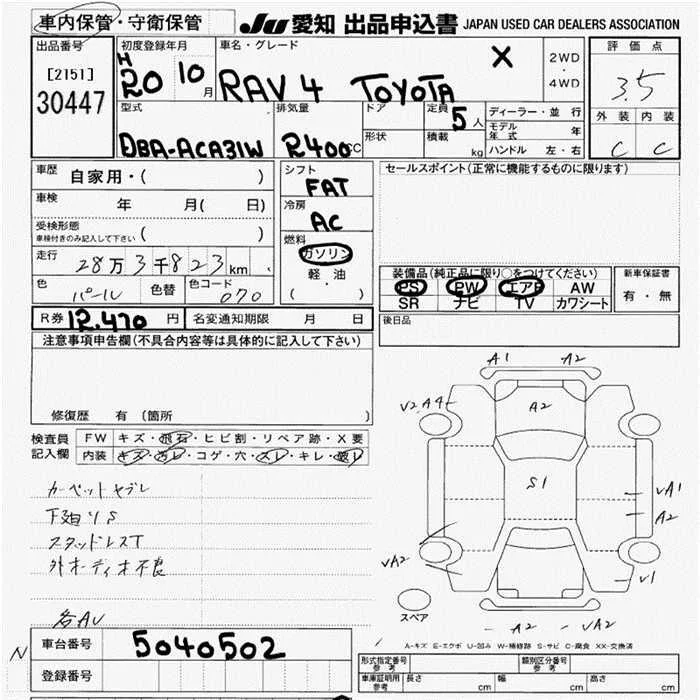 車内保管・守衛保管
JU 愛知 出品申込書 JAPAN USED CAR DEALERS ASSOCIATION
出品番号
[2151]
30447
初度登録年月
H 20 10月
車名・グレード
RAV4 TOYOTA X
2WD・4WD
評価点
3.5
外装 内装
C C
型式
DBA-ACA31W
排気量
2400CC
ドア
形状
定員 5人
積載 kg
ディーラー・並行
モデル年式 年
ハンドル 左・右
車歴 自家用・( )
車検 年 月( 日)
受検形態
車検付きのみ記入して下さい ( )
走行 28万3千823km
色 パール 色替 色コード 070
シフト
FAT
冷房
AC
燃料
ガソリン
軽・油
( )
セールスポイント(正常に機能するものに限ります)
装備品(純正品に限り○をつけてください)
PS PW エアB AW
SR ナビ TV カワシート
新車保証書
有・無
R券 12,470円 名変通知期限 月 日
後日品
注意事項申告欄(不具合内容等は具体的に記入して下さい)
修復歴 有(箇所 )
検査員記入欄
FW キズ・飛石・ヒビ割・リペア跡・X要
内装 キズ・汚レ・コゲ・穴・スレ・キレ・破レ
カーペットヤブレ
下廻りS
スタッドレスT
外オーディオ不良
各AU
A1 A2
V2 A4
A2
S1
VA1
A2
VA2
V1
スペア
A2 VA2
A-キズ E-エクボ U-凹み W-補修跡 S-サビ C-腐食 XX-交換済
N
車台番号 5040502
登録番号
型式指定番号 参考
類別区分番号 参考
車庫証明用 参考 長さ cm 幅 cm 高さ cm